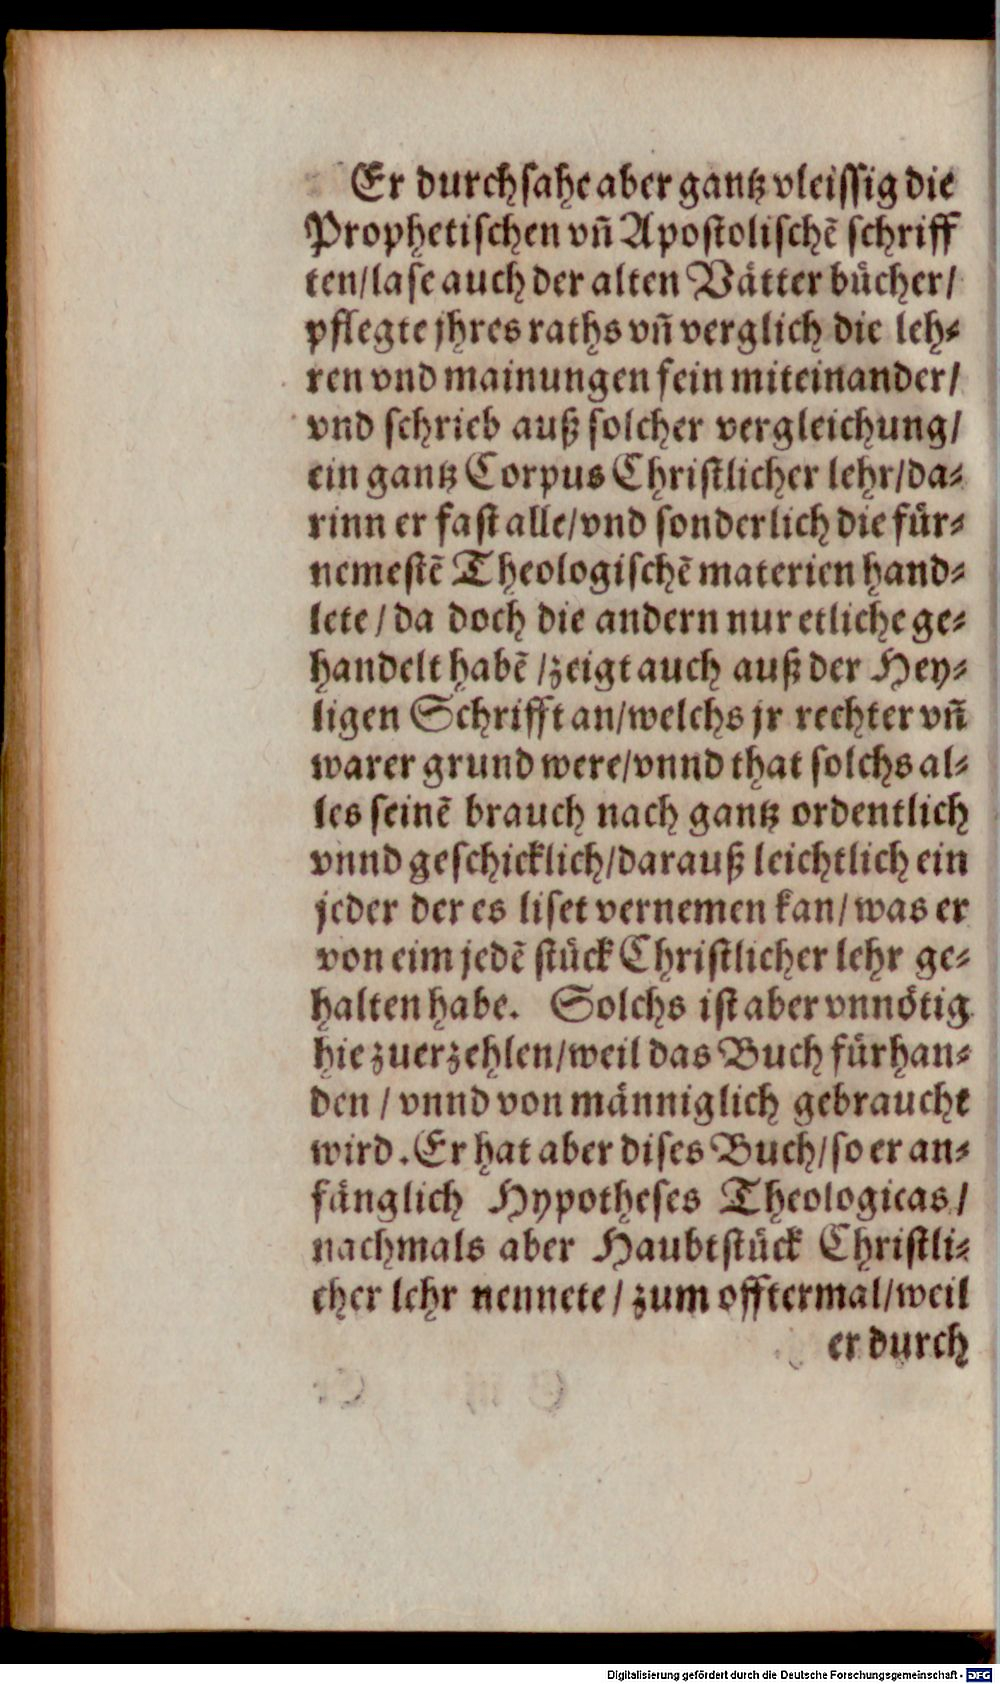 Er durchsahe aber gantz vleissig die
Prophetischen vñ Apostolischẽ schriff
ten/lase auch der alten Vätter bücher/
pflegte jhres raths vñ verglich die leh⸗
ren vnd mainungen fein miteinander/
vnd schrieb auß solcher vergleichung/
ein gantz Corpus Christlicher lehr/da⸗
rinn er fast alle/vnd sonderlich die für⸗
nemestẽ Theologischẽ materien hand⸗
lete/da doch die andern nur etliche ge⸗
handelt habẽ/zeigt auch auß der Hey⸗
ligen Schrifft an/welchs jr rechter vñ
warer grund were/vnnd that solchs al⸗
les seinẽ brauch nach gantz ordentlich
vnnd geschicklich/darauß leichtlich ein
jeder der es liset vernemen kan/was er
von eim jedẽ stück Christlicher lehr ge⸗
halten habe. Solchs ist aber vnnötig
hie zuerzehlen/weil das Buch fürhan⸗
den/vnnd von männiglich gebraucht
wird. Er hat aber dises Buch/so er an⸗
fänglich Hypotheses Theologicas/
nachmals aber Haubtstück Christli⸗
cher lehr nennete/zum offtermal/weil
er durch
Digitalisierung gefördert durch die Deutsche Forschungsgemeinschaft - DFG